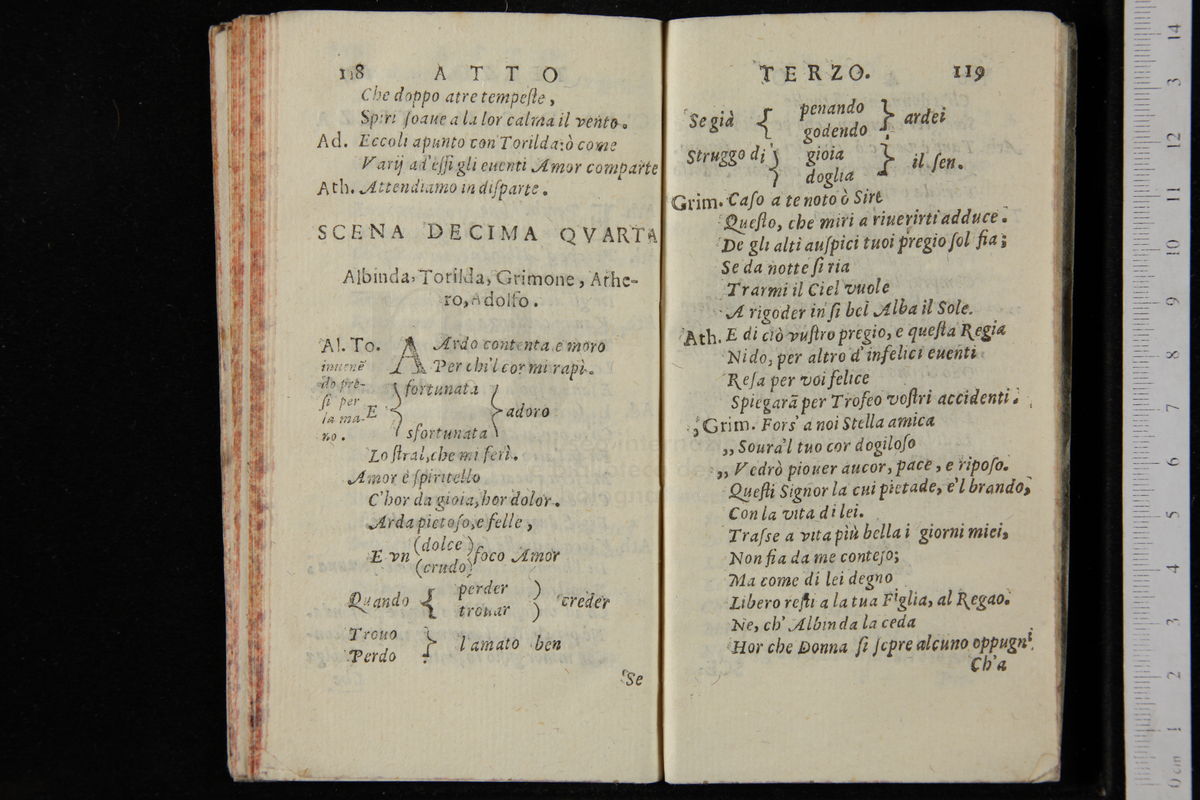 118 ATTO
Che doppo atre tempeſte,
Spiri ſoaue a la lor calma il vento.
Ad. Eccoli apunto con Torilda: ò come
Varij ad'eſſi gli euenti Amor comparte
Ath. Attendiamo in diſparte.
SCENA DECIMA QVARTA
Albinda, Torilda, Grimone, Athe-
ro, Adolfo.
Al. To. ARdo contenta e moro
Per chi'l cor mi rapì.
fortunata
E adoro
sfortunata
Lo ſtral, che mi ferì.
Amor è ſpiritello
C'hor da gioia, hor dolor.
Arda pietoſo, e felle,
E vn (dolce) foco Amor
(crudo)
Quando { perder ) creder
trouar )
Trouo } l'amato ben
Perdo
Se
TERZO. 119
Se già { penando } ardei
godendo
Struggo di } gioia } il ſen.
doglia
Grim. Caſo a te noto ò Sire
Queſto, che miri a riuerirti adduce.
De gli alti auſpici tuoi pregio ſol fia;
Se da notte ſi ria
Trarmi il Ciel vuole
A rigoder in ſi bel Alba il Sole.
Ath. E di ciò vuſtro pregio, e queſta Regia
Nido, per altro d'infelici euenti
Reſa per voi felice
Spiegarà per Trofeo voſtri accidenti.
„Grim. Fors' a noi Stella amica
„Soura'l tuo cor dogiloſo
„Vedrò piouer aucor, pace, e ripoſo.
Queſti Signor la cui pietade, e'l brando,
Con la vita di lei.
Traſse a vita più bella i giorni miei,
Non fia da me conteſo;
Ma come di lei degno
Libero reſti a la tua Figlia, al Regao.
Ne, ch' Albinda la ceda
Hor che Donna ſi ſcpre alcuno oppugni
Ch'a